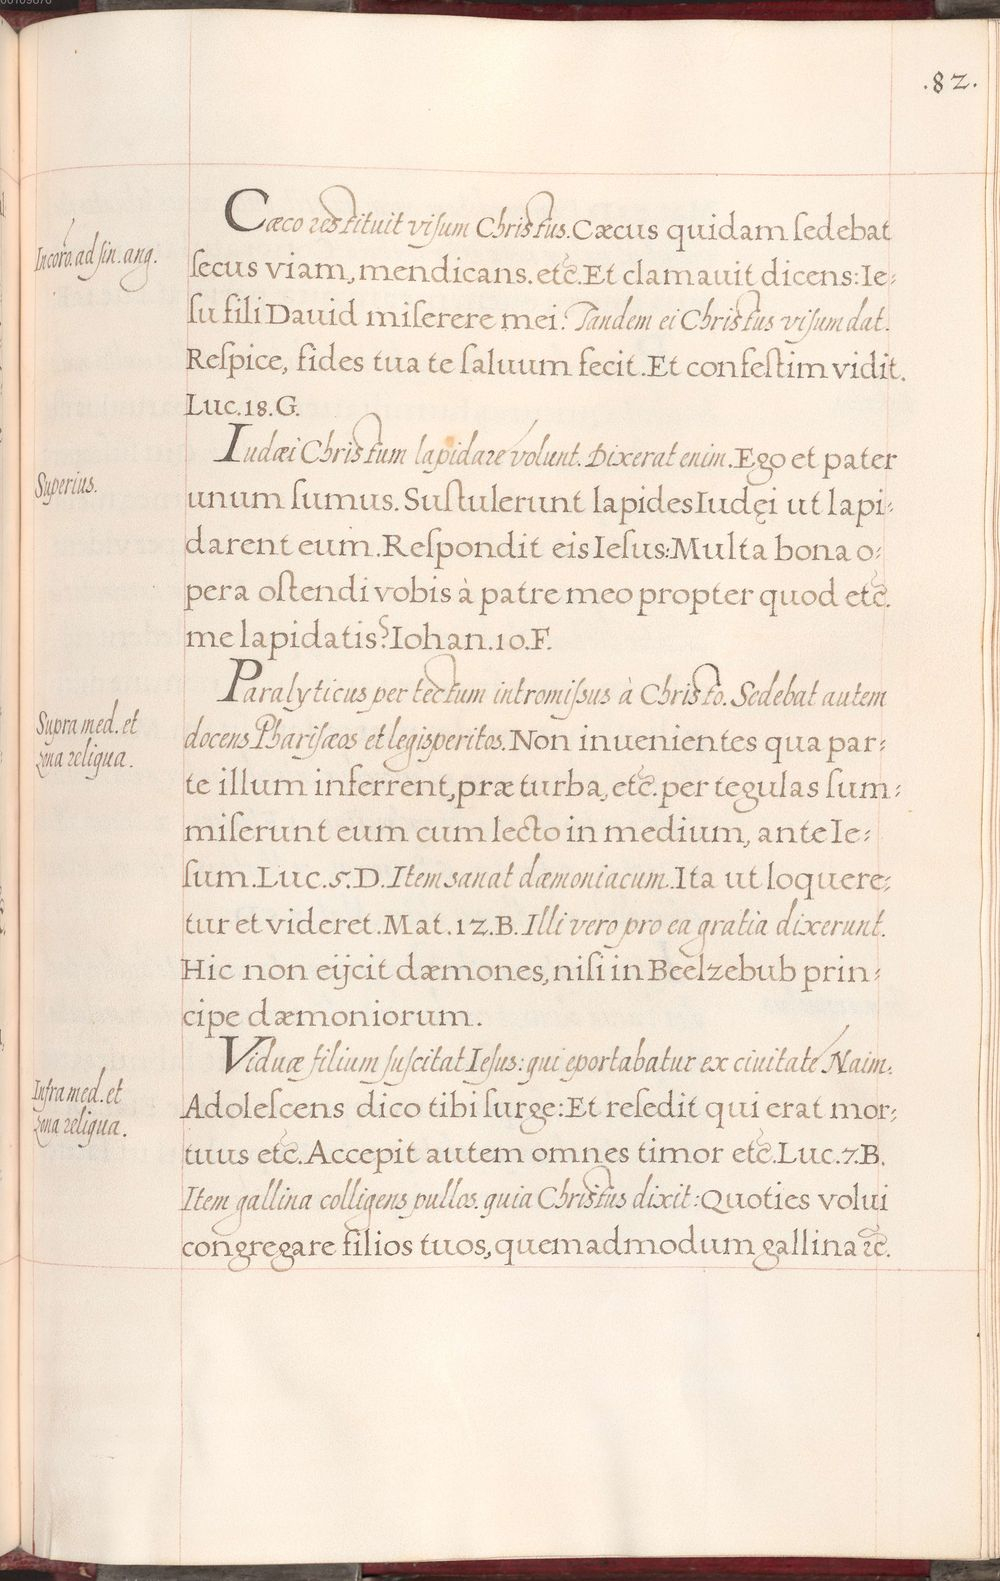 00109876
.82.
Incoro. ad sin. ang.
Cæco restituit visum Christus. Cæcus quidam sedebat
secus viam, mendicans. etc. Et clamauit dicens: Ie-
su fili Dauid miserere mei. Tandem ei Christus visum dat.
Respice, fides tua te saluum fecit. Et confestim vidit.
Luc. 18. G.
Superius.
Iudæi Christum lapidare volunt. Dixerat enim. Ego et pater
unum sumus. Sustulerunt lapides Iudęi ut lapi-
darent eum. Respondit eis Iesus: Multa bona o-
pera ostendi vobis à patre meo propter quod etc.
me lapidatis? Iohan. 10. F.
Supra med. et
zona religua.
Paralyticus per tectum intromissus à Christo. Sedebat autem
docens Pharisæos et legisperitos. Non inuenientes qua par-
te illum inferrent, præ turba, etc. per tegulas sum-
miserunt eum cum lecto in medium, ante Ie-
sum. Luc. 5. D. Item sanat dæmoniacum. Ita ut loquere-
tur et videret. Mat. 12. B. Illi vero pro ea gratia dixerunt.
Hic non eijcit dæmones, nisi in Beelzebub prin-
cipe dæmoniorum.
Infra med. et
zona religua.
Viduæ filium suscitat Iesus: qui eportabatur ex ciuitate Naim.
Adolescens dico tibi surge: Et resedit qui erat mor-
tuus etc. Accepit autem omnes timor etc. Luc. 7. B.
Item gallina colligens pullos. quia Christus dixit: Quoties volui
congregare filios tuos, quemadmodum gallina etc.